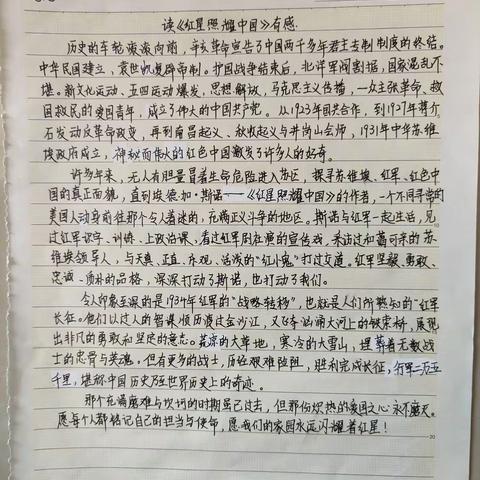 读《红星照耀中国》有感
历史的车轮滚滚向前，辛亥革命宣告了中国两千多年君主专制制度的终结。
中华民国建立，袁世凯复辟帝制。护国战争结束后，北洋军阀割据，国家混乱不
堪。新文化运动、五四运动爆发，思想解放，马克思主义传播，一众主张革命、救
国救民的爱国青年，成立了伟大的中国共产党。从1923年国共合作，到1927年蒋介
石发动反革命政变，再到南昌起义、秋收起义与井岗山会师，1931年中华苏维
埃政府成立，神秘而伟大的红色中国激发了许多人的好奇。
许多年来，无人有胆量冒着生命危险进入苏区，探寻苏维埃、红军、红色中
国的真正面貌，直到埃德加·斯诺——《红星照耀中国》的作者，一个不同寻常的
美国人动身前往那个令人着迷的，充满正义斗争的地区。斯诺与红军一起生活，见
过红军识字、训练、上政治课，看过红军剧社演的宣传戏，采访过和蔼可亲的苏
维埃领导人，与天真、正直、乐观、活泼的“红小鬼”打过交道。红军坚毅、勇敢、
忠诚、质朴的品格，深深打动了斯诺，也打动了我们。
令人印象至深的是1934年红军的“战略转移”，也就是人们所熟知的“红军
长征。他们以过人的智谋顺历渡过金沙江，又飞夺汹涌大河上的铁索桥，展现
出非凡的勇敢和坚定的意志。荒凉的大草地，寒冷的大雪山，埋葬着无数战
士的忠骨与英魂。但有更多的战士，历经艰难险阻，胜利完成长征，行军二万五
千里，堪称中国历史乃至世界历史上的奇迹。
那个充满磨难与坎坷的时期虽已过去，但那份炽热的爱国之心永不磨灭。
愿每个人都铭记自己的担当与使命，愿我们的家园永远闪耀着红星！
20